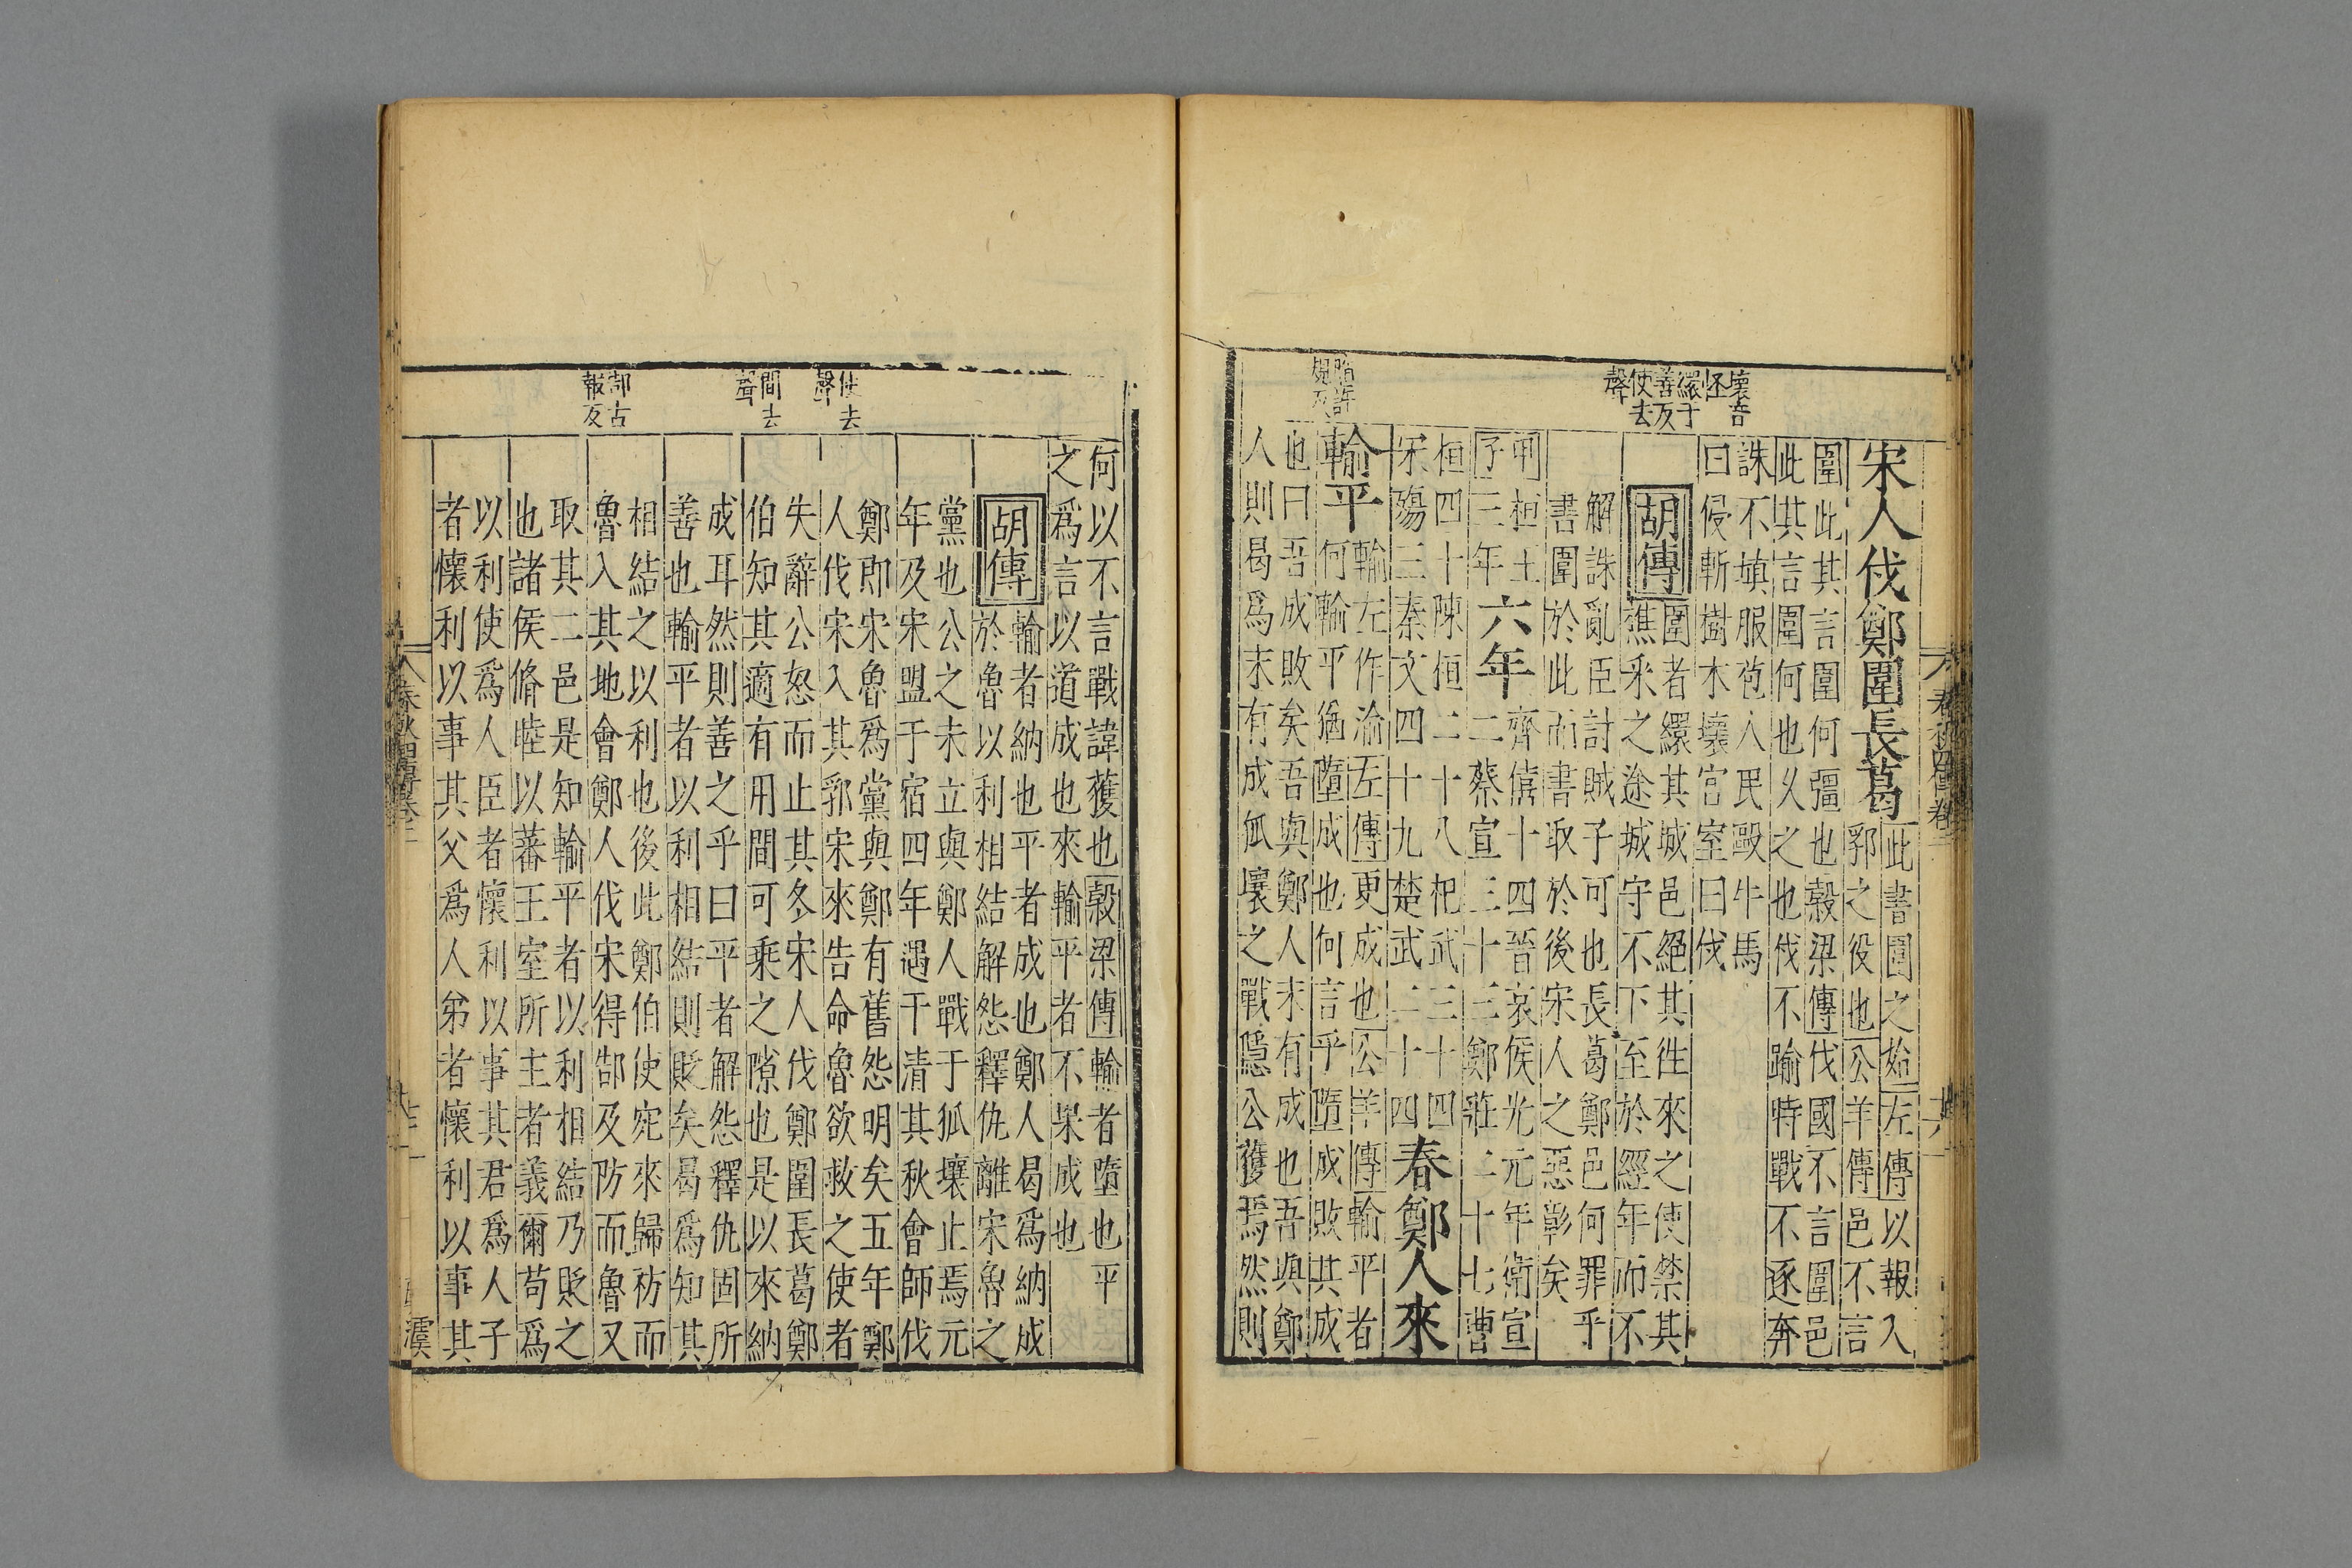 壞音
怪
繯于
善反
使去
聲
墮許
規反
宋人伐鄭圍長葛
此書圍之始左傳以報入
郛之役也公羊傳邑不言
圍此其言圍何彊也穀梁傳伐國不言圍邑
此其言圍何也久之也伐不踰時戰不逐奔
誅不填服苞人民毆牛馬
曰侵斬樹木壞宮室曰伐
胡傳
圍者繯其城邑絕其徃來之使禁其
樵采之途城守不下至於經年而不
解誅亂臣討賊子可也長葛鄭邑何罪乎
書圍於此而書取於後宋人之惡彰矣
桓王
三年
六年
齊僖十四晉哀侯光元年衛宣
二蔡宣三十三鄭莊二十七曹
桓四十陳桓二十八杞武三十四
宋殤三秦文四十九楚武二十四
春鄭人來
輸平
輸左作渝左傳更成也公羊傳輸平者
何輸平猶墮成也何言乎墮成敗其成
也曰吾成敗矣吾與鄭人末有成也吾與鄭
人則曷爲末有成狐壤之戰隱公獲焉然則
春秋四傳卷二
使去
聲
間去
聲
郜古
報反
何以不言戰諱獲也穀梁傳輸者墮也平
之爲言以道成也來輸平者不果成也
胡傳
輸者納也平者成也鄭人曷爲納成
於魯以利相結解怨釋仇離宋魯之
黨也公之未立與鄭人戰于狐壤止焉元
年及宋盟于宿四年遇于清其秋會師伐
鄭即宋魯爲黨與鄭有舊怨明矣五年鄭
人伐宋入其郛宋來告命魯欲救之使者
失辭公怒而止其冬宋人伐鄭圍長葛鄭
伯知其適有用間可乘之隙也是以來納
成耳然則善之乎曰平者解怨釋仇固所
善也輸平者以利相結則貶矣曷爲知其
相結之以利也後此鄭伯使宛來歸祊而
魯入其地會鄭人伐宋得郜及防而魯又
取其二邑是知輸平者以利相結乃貶之
也諸侯脩睦以蕃王室所主者義爾苟爲
以利使爲人臣者懷利以事其君爲人子
者懷利以事其父爲人弟者懷利以事其
春秋四傳卷二